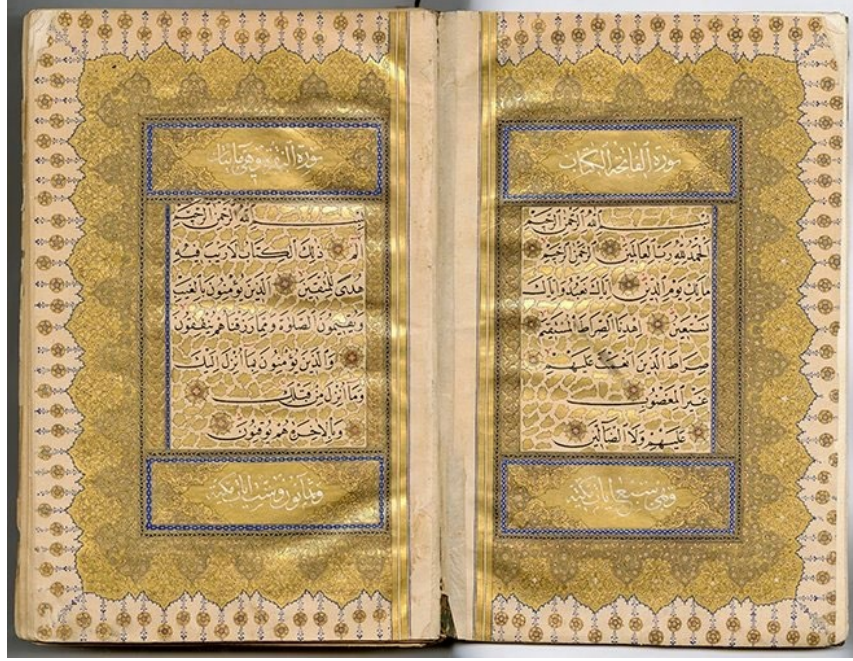 سورة الفاتحة الكتاب
بسم الله الرحمن الرحيم
الحمد لله رب العالمين الرحمن الرحيم
مالك يوم الدين اياك نعبد واياك
نستعين اهدنا الصراط المستقيم
صراط الذين انعمت عليهم
غير المغضوب
عليهم ولا الضالين
وهي سبع ايات مكية
سورة البقرة وهي مايتان
بسم الله الرحمن الرحيم
الم ذلك الكتاب لا ريب فيه
هدى للمتقين الذين يؤمنون بالغيب
ويقيمون الصلوة ومما رزقناهم ينفقون
والذين يؤمنون بما انزل اليك
وما انزل من قبلك
وبالاخرة هم يوقنون
وثمانون وست ايات